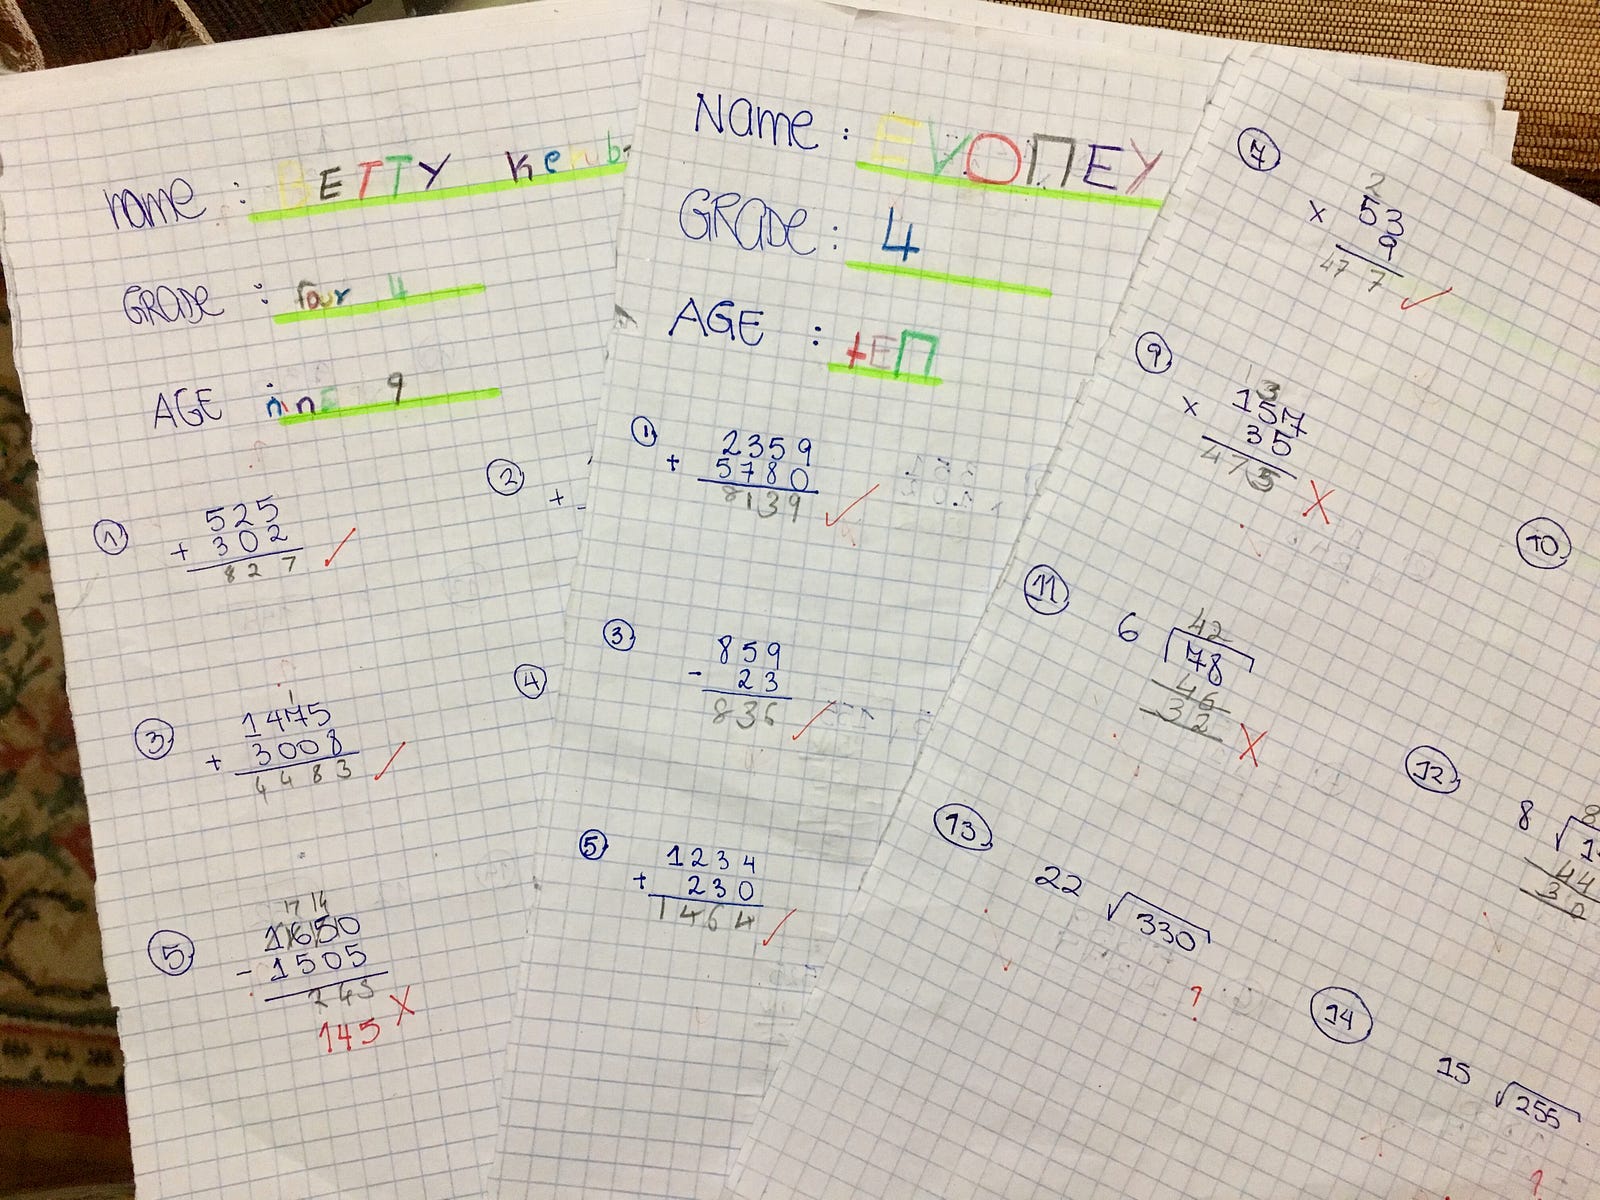 name : BETTY Kemb
GRADE : four 4
AGE : ninE 9
1
525
+ 302
827
2
+
3
1
1475
+ 3008
4483
4
5
17 14
1650
- 1505
245
145 X
Name : EVONEY
GRADE : 4
AGE : tEN
1
2359
+ 5780
8139
3
859
- 23
836
5
1234
+ 230
1464
7
2
53
x 9
47 7
9
3
157
x 35
4735
X
10
11
42
6 78
46
- 32
X
12
8
44
30
13
22 330
?
14
15 255
?